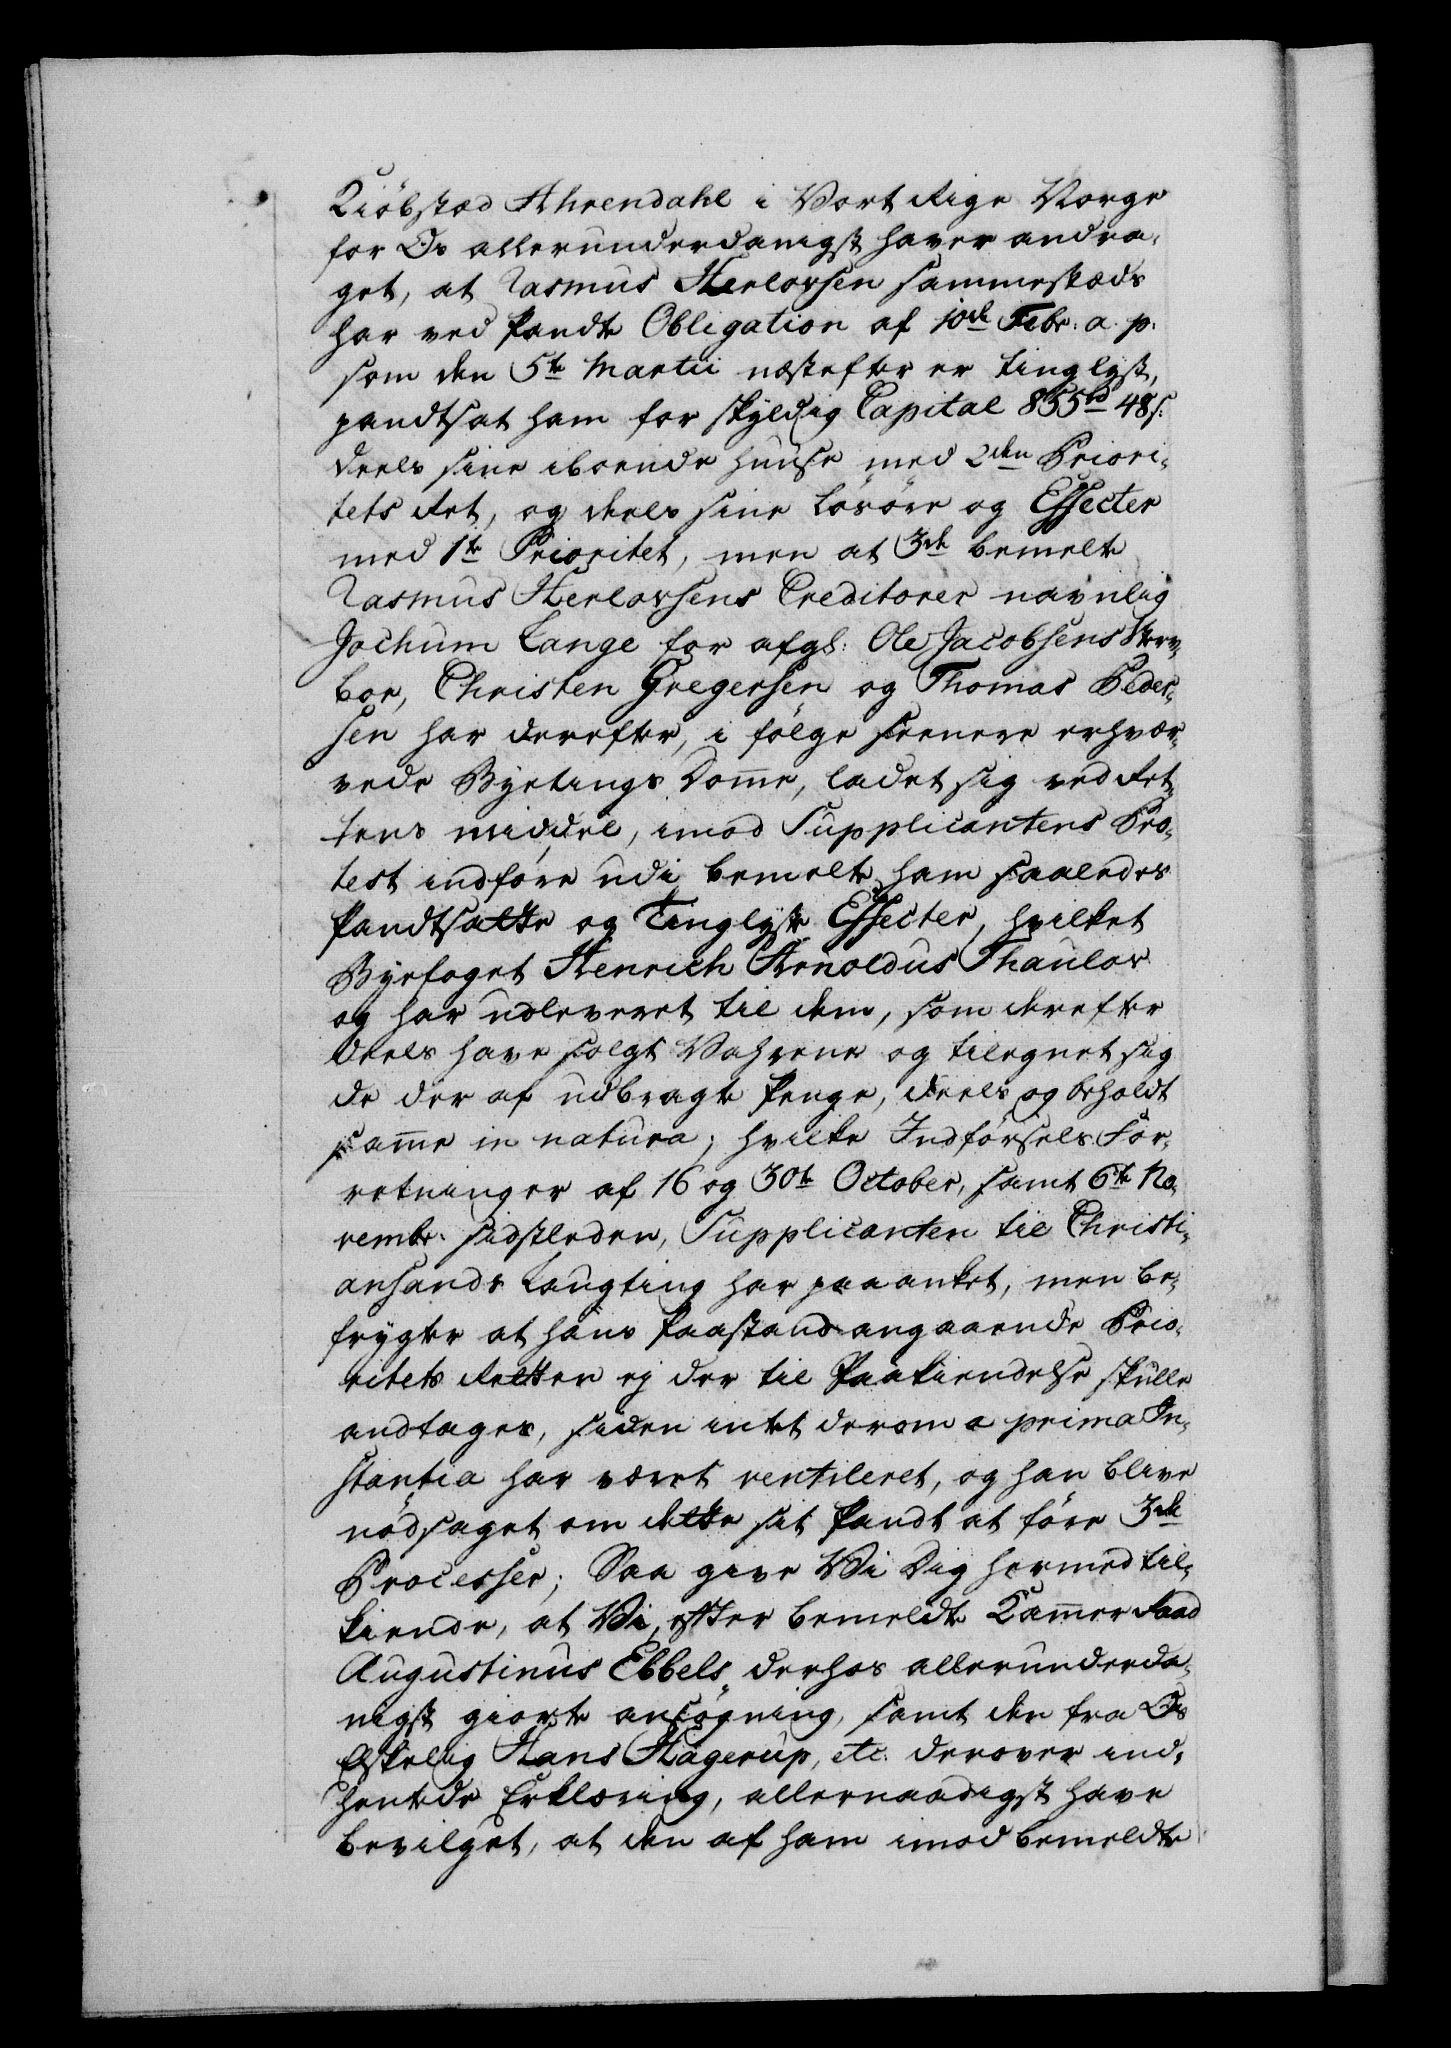 Kiöbstæd Ahrendahl i Vort Rige Norge
for Os allerunderdanigst haver andra-
get, at Rasmus Herlovsen sammestæds
har ved Pandte Obligation af 10de Febr: a. p.
som den 5te Martii næstefter er tinglyst,
pandtsat ham for skyldig Capital 855 rd 48 s:
deels sine iboende Huuse med 2den Priori-
tets Ret, og deels sine Lösöre og Effecter
med 1te Prioritet, men at 3de bemelte
Rasmus Herlovsens Creditorer navnlig
Jochum Lange for afgl: Ole Jacobsens Sterv-
boe, Christen Gregersen og Thomas Peder-
sen har derefter, i fölge seenere erhver-
vede Byetings Domme, ladet sig ved Ret-
tens middel, imod Supplicantens Pro-
test indföre udi bemelte ham saaledes
Pandtsatte og Tinglyste Effecter, hvilket
Byefoget Henrich Arnoldus Thaulov
og har udleveret til dem, som derefter
deels have solgt Vahrene og tilegnet sig
de der af udbragte Penge, deels og beholdt
samme in natura; hvilke Indförsels For-
retninger af 16 og 30te October, samt 6te No-
vembr: sidstleden, Supplicanten til Christi-
ansands Laugting har paaanket, men be-
frygter at hans Paastand angaaende Prio-
ritets Retten ej der til Paakiendelse skulle
andtages, siden intet derom a prima In-
stantia har været ventileret, og han blive
nödsaget om dette sit Pandt at före 3de
Processer; Saa give Vi Dig hermed til-
kiende, at Vi, efter bemeldte Kammer Raad
Augustinus Ebbels derhos allerunderda-
nigst giorte ansögning, samt den fra Os
Elskelig Hans Hagerup, etc. derover ind-
hentede Erklæring, allernaadigst have
bevilget, at den af ham imod bemeldte